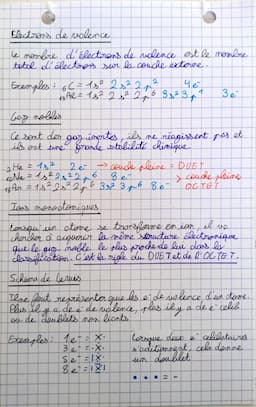 Électrons de valence
Le nombre d'électrons de valence est le nombre
total d'électrons sur la couche externe.
Exemples : ₆C = 1s² 2s² 2p² 4e⁻
₁₃Al = 1s² 2s² 2p⁶ 3s² 3p¹ 3e⁻
Gaz nobles
Ce sont des gaz inertes, ils ne réagissent pas et
ils ont une grande stabilité chimique.
₂He = 1s² 2e⁻ → couche pleine = DUET
₁₀Ne = 1s² 2s² 2p⁶ 8e⁻ > couche pleine
₁₈Ar = 1s² 2s² 2p⁶ 3s² 3p⁶ 8e⁻ OCTET
Ions monoatomiques
Lorsqu'un atome se transforme en ion, il va
chercher à acquérir la même structure électronique
que le gaz noble le plus proche de lui dans la
classification. C'est la règle du DUET et de l'OCTET.
Schéma de Lewis
Il ne faut représenter que les e⁻ de valence d'un atome.
Plus il y a de e⁻ de valence, plus il y a de e⁻ celib
ou de doublets non liants.
Exemples : 1e⁻ = X· Lorsque deux e⁻ celibataires
3e⁻ = ·X· s'additionnent, cela donne
5e⁻ = un doublet
8e⁻ =
• • • = –